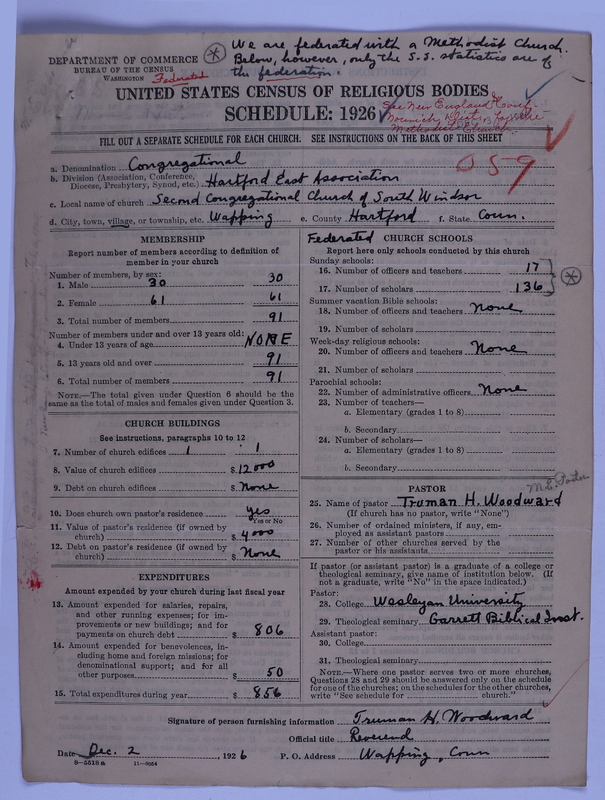 We are federated with a Methodist Church.
Below, however, only the S.S. statistics are of
the federation.
DEPARTMENT OF COMMERCE
BUREAU OF THE CENSUS
WASHINGTON
Federated
UNITED STATES CENSUS OF RELIGIOUS BODIES
SCHEDULE: 1926
See New England
Norwich Dist.
Methodist Church
FILL OUT A SEPARATE SCHEDULE FOR EACH CHURCH. SEE INSTRUCTIONS ON THE BACK OF THIS SHEET
059
a. Denomination Congregational
b. Division (Association, Conference, Diocese, Presbytery, Synod, etc.) Hartford East Association
c. Local name of church Second Congregational Church of South Windsor
d. City, town, village, or township, etc. Wapping e. County Hartford f. State Conn.
MEMBERSHIP
Report number of members according to definition of
member in your church
Number of members, by sex:
1. Male 30 30
2. Female 61 61
3. Total number of members 91
Number of members under and over 13 years old:
4. Under 13 years of age NONE
5. 13 years old and over 91
6. Total number of members 91
NOTE.—The total given under Question 6 should be the
same as the total of males and females given under Question 3.
CHURCH BUILDINGS
See instructions, paragraphs 10 to 12
7. Number of church edifices 1 1
8. Value of church edifices $ 12000
9. Debt on church edifices $ None
10. Does church own pastor's residence? yes
Yes or No
11. Value of pastor's residence (if owned by
church) $ 4000
12. Debt on pastor's residence (if owned by
church) $ None
EXPENDITURES
Amount expended by your church during last fiscal year
13. Amount expended for salaries, repairs,
and other running expenses; for im-
provements or new buildings; and for
payments on church debt $ 806
14. Amount expended for benevolences, in-
cluding home and foreign missions; for
denominational support; and for all
other purposes $ 50
15. Total expenditures during year $ 856
Federated CHURCH SCHOOLS
Report here only schools conducted by this church
Sunday schools:
16. Number of officers and teachers 17
17. Number of scholars 136
Summer vacation Bible schools:
18. Number of officers and teachers None
19. Number of scholars
Week-day religious schools:
20. Number of officers and teachers None
21. Number of scholars
Parochial schools:
22. Number of administrative officers None
23. Number of teachers—
a. Elementary (grades 1 to 8)
b. Secondary
24. Number of scholars—
a. Elementary (grades 1 to 8)
b. Secondary
PASTOR
M.E. Pastor
25. Name of pastor Truman H. Woodward
(If church has no pastor, write "None")
26. Number of ordained ministers, if any, em-
ployed as assistant pastors
27. Number of other churches served by the
pastor or his assistants
If pastor (or assistant pastor) is a graduate of a college or
theological seminary, give name of institution below. (If
not a graduate, write "No" in the space indicated.)
Pastor:
28. College Wesleyan University
29. Theological seminary Garrett Biblical Inst.
Assistant pastor:
30. College
31. Theological seminary
NOTE.—Where one pastor serves two or more churches,
Questions 28 and 29 should be answered only on the schedule
for one of the churches; on the schedules for the other churches,
write "See schedule for church."
Signature of person furnishing information Truman H. Woodward
Official title Reverend
Date Dec. 2, 1926 P. O. Address Wapping, Conn
8—5518a 11—9054